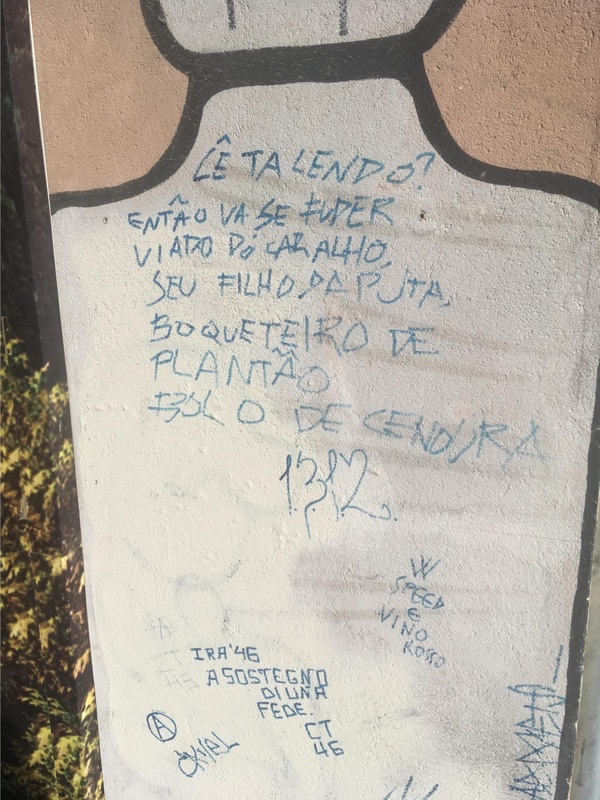 CÊ TA LENDO?
ENTÃO VA SE FUDER
VIADO DO CARALHO,
SEU FILHO DA PUTA,
BOQUETEIRO DE
PLANTÃO
BOLO DE CENOURA
1312
W
SPEED
E
VINO
ROSSO
IRA '46
A SOSTEGNO
DI UNA
FEDE.
CT
46
A